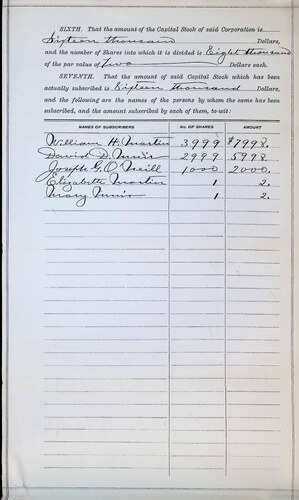 SIXTH. That the amount of the Capital Stock of said Corporation is
Sixteen thousand Dollars,
and the number of Shares into which it is divided is Eight thousand
of the par value of Two Dollars each.
SEVENTH. That the amount of said Capital Stock which has been
actually subscribed is Sixteen thousand Dollars,
and the following are the names of the persons by whom the same has been
subscribed, and the amount subscribed by each of them, to-wit:
NAMES OF SUBSCRIBERS No. OF SHARES AMOUNT
William H. Martin 3999 $7998.
David D. 2999 5998.
Joseph G. O'Neill 1000 2000.
Elizabeth Martin 1 2.
Mary 1 2.